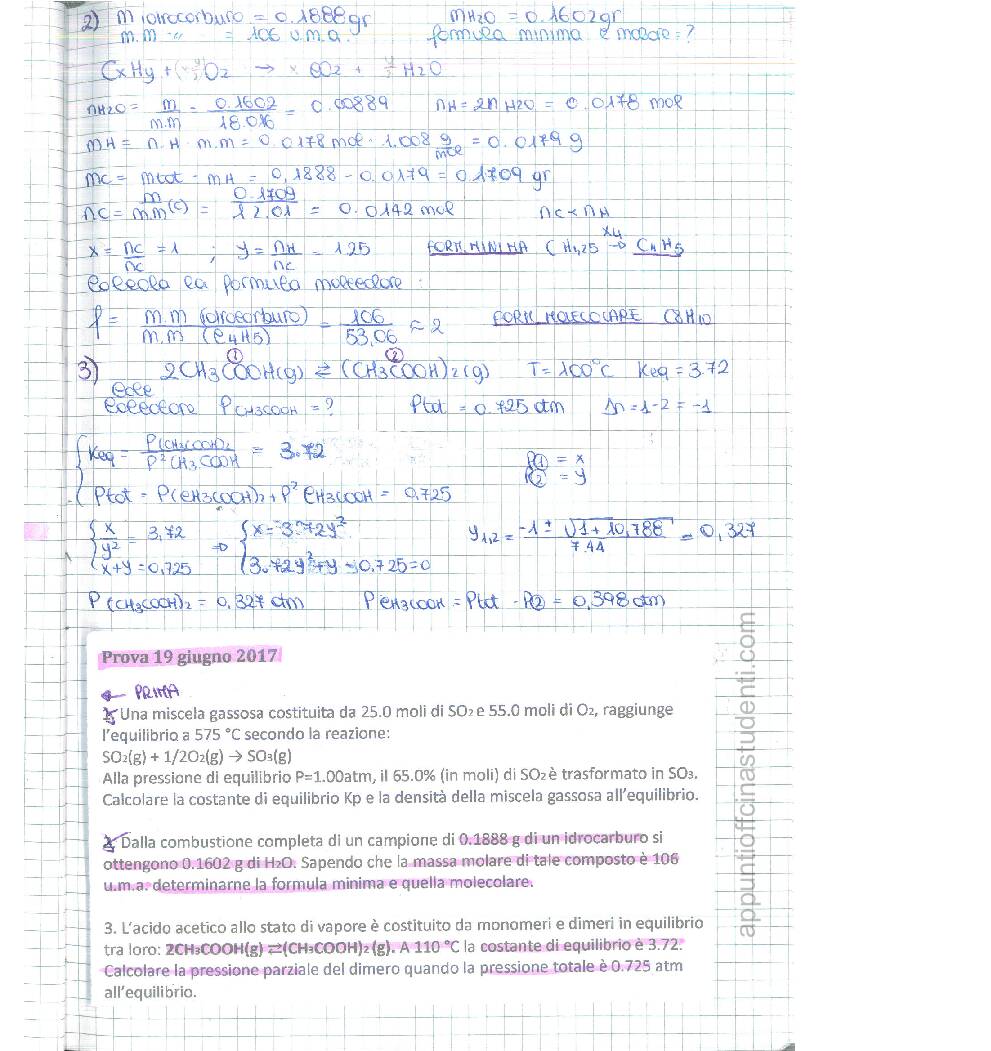 2) m idrocarburo = 0.1888 gr mH2O = 0.1602 gr
m.m " = 106 u.m.a. formula minima e molare = ?
CxHy + O2 → x CO2 + y/2 H2O
nH2O = m/m.m = 0.1602/18.016 = 0.00889 nH = 2n H2O = 0.0178 mol
mH = n.H · m.m = 0.0178 mol · 1.008 g/mol = 0.0179 g
mc = mtot - mH = 0,1888 - 0.0179 = 0.1709 gr
nc = m/m.m (C) = 0.1709/12.01 = 0.0142 mol nc < nH
x = nc/nc = 1 ; y = nH/nc = 1.25 FORM. MINIMA CH1,25 x4→ C4H5
Calcola la formula molecolare :
f = m.m (idrocarburo)/m.m (C4H5) = 106/53,06 ≈ 2 FORM. MOLECOLARE C8H10
3) 2CH3COOH(g) ⇄ (CH3COOH)2(g) T = 100°C Keq = 3.72
① ②
Calcolare PCH3COOH = ? Ptot = 0.725 atm Δn = 1-2 = -1
Keq = P(CH3COOH)2/P²CH3COOH = 3.72
P① = x
P② = y
Ptot = P(CH3COOH)2 + P² CH3COOH = 0,725
{ x/y² = 3,72 ⇒ { x = 3.72y² y1,2 = -1 ± √1 + 10,788/7.44 = 0,327
x+y = 0,725 3.72y² + y - 0.725 = 0
P(CH3COOH)2 = 0,327 atm PCH3COOH = Ptot - P② = 0,398 atm
Prova 19 giugno 2017
← PRIMA
1. Una miscela gassosa costituita da 25.0 moli di SO2 e 55.0 moli di O2, raggiunge
l'equilibrio a 575 °C secondo la reazione:
SO2(g) + 1/2O2(g) → SO3(g)
Alla pressione di equilibrio P=1.00atm, il 65.0% (in moli) di SO2 è trasformato in SO3.
Calcolare la costante di equilibrio Kp e la densità della miscela gassosa all'equilibrio.
2. Dalla combustione completa di un campione di 0.1888 g di un idrocarburo si
ottengono 0.1602 g di H2O. Sapendo che la massa molare di tale composto è 106
u.m.a. determinarne la formula minima e quella molecolare.
3. L'acido acetico allo stato di vapore è costituito da monomeri e dimeri in equilibrio
tra loro: 2CH3COOH(g) ⇄(CH3COOH)2 (g). A 110 °C la costante di equilibrio è 3.72.
Calcolare la pressione parziale del dimero quando la pressione totale è 0.725 atm
all'equilibrio.
appuntiofficinastudenti.com